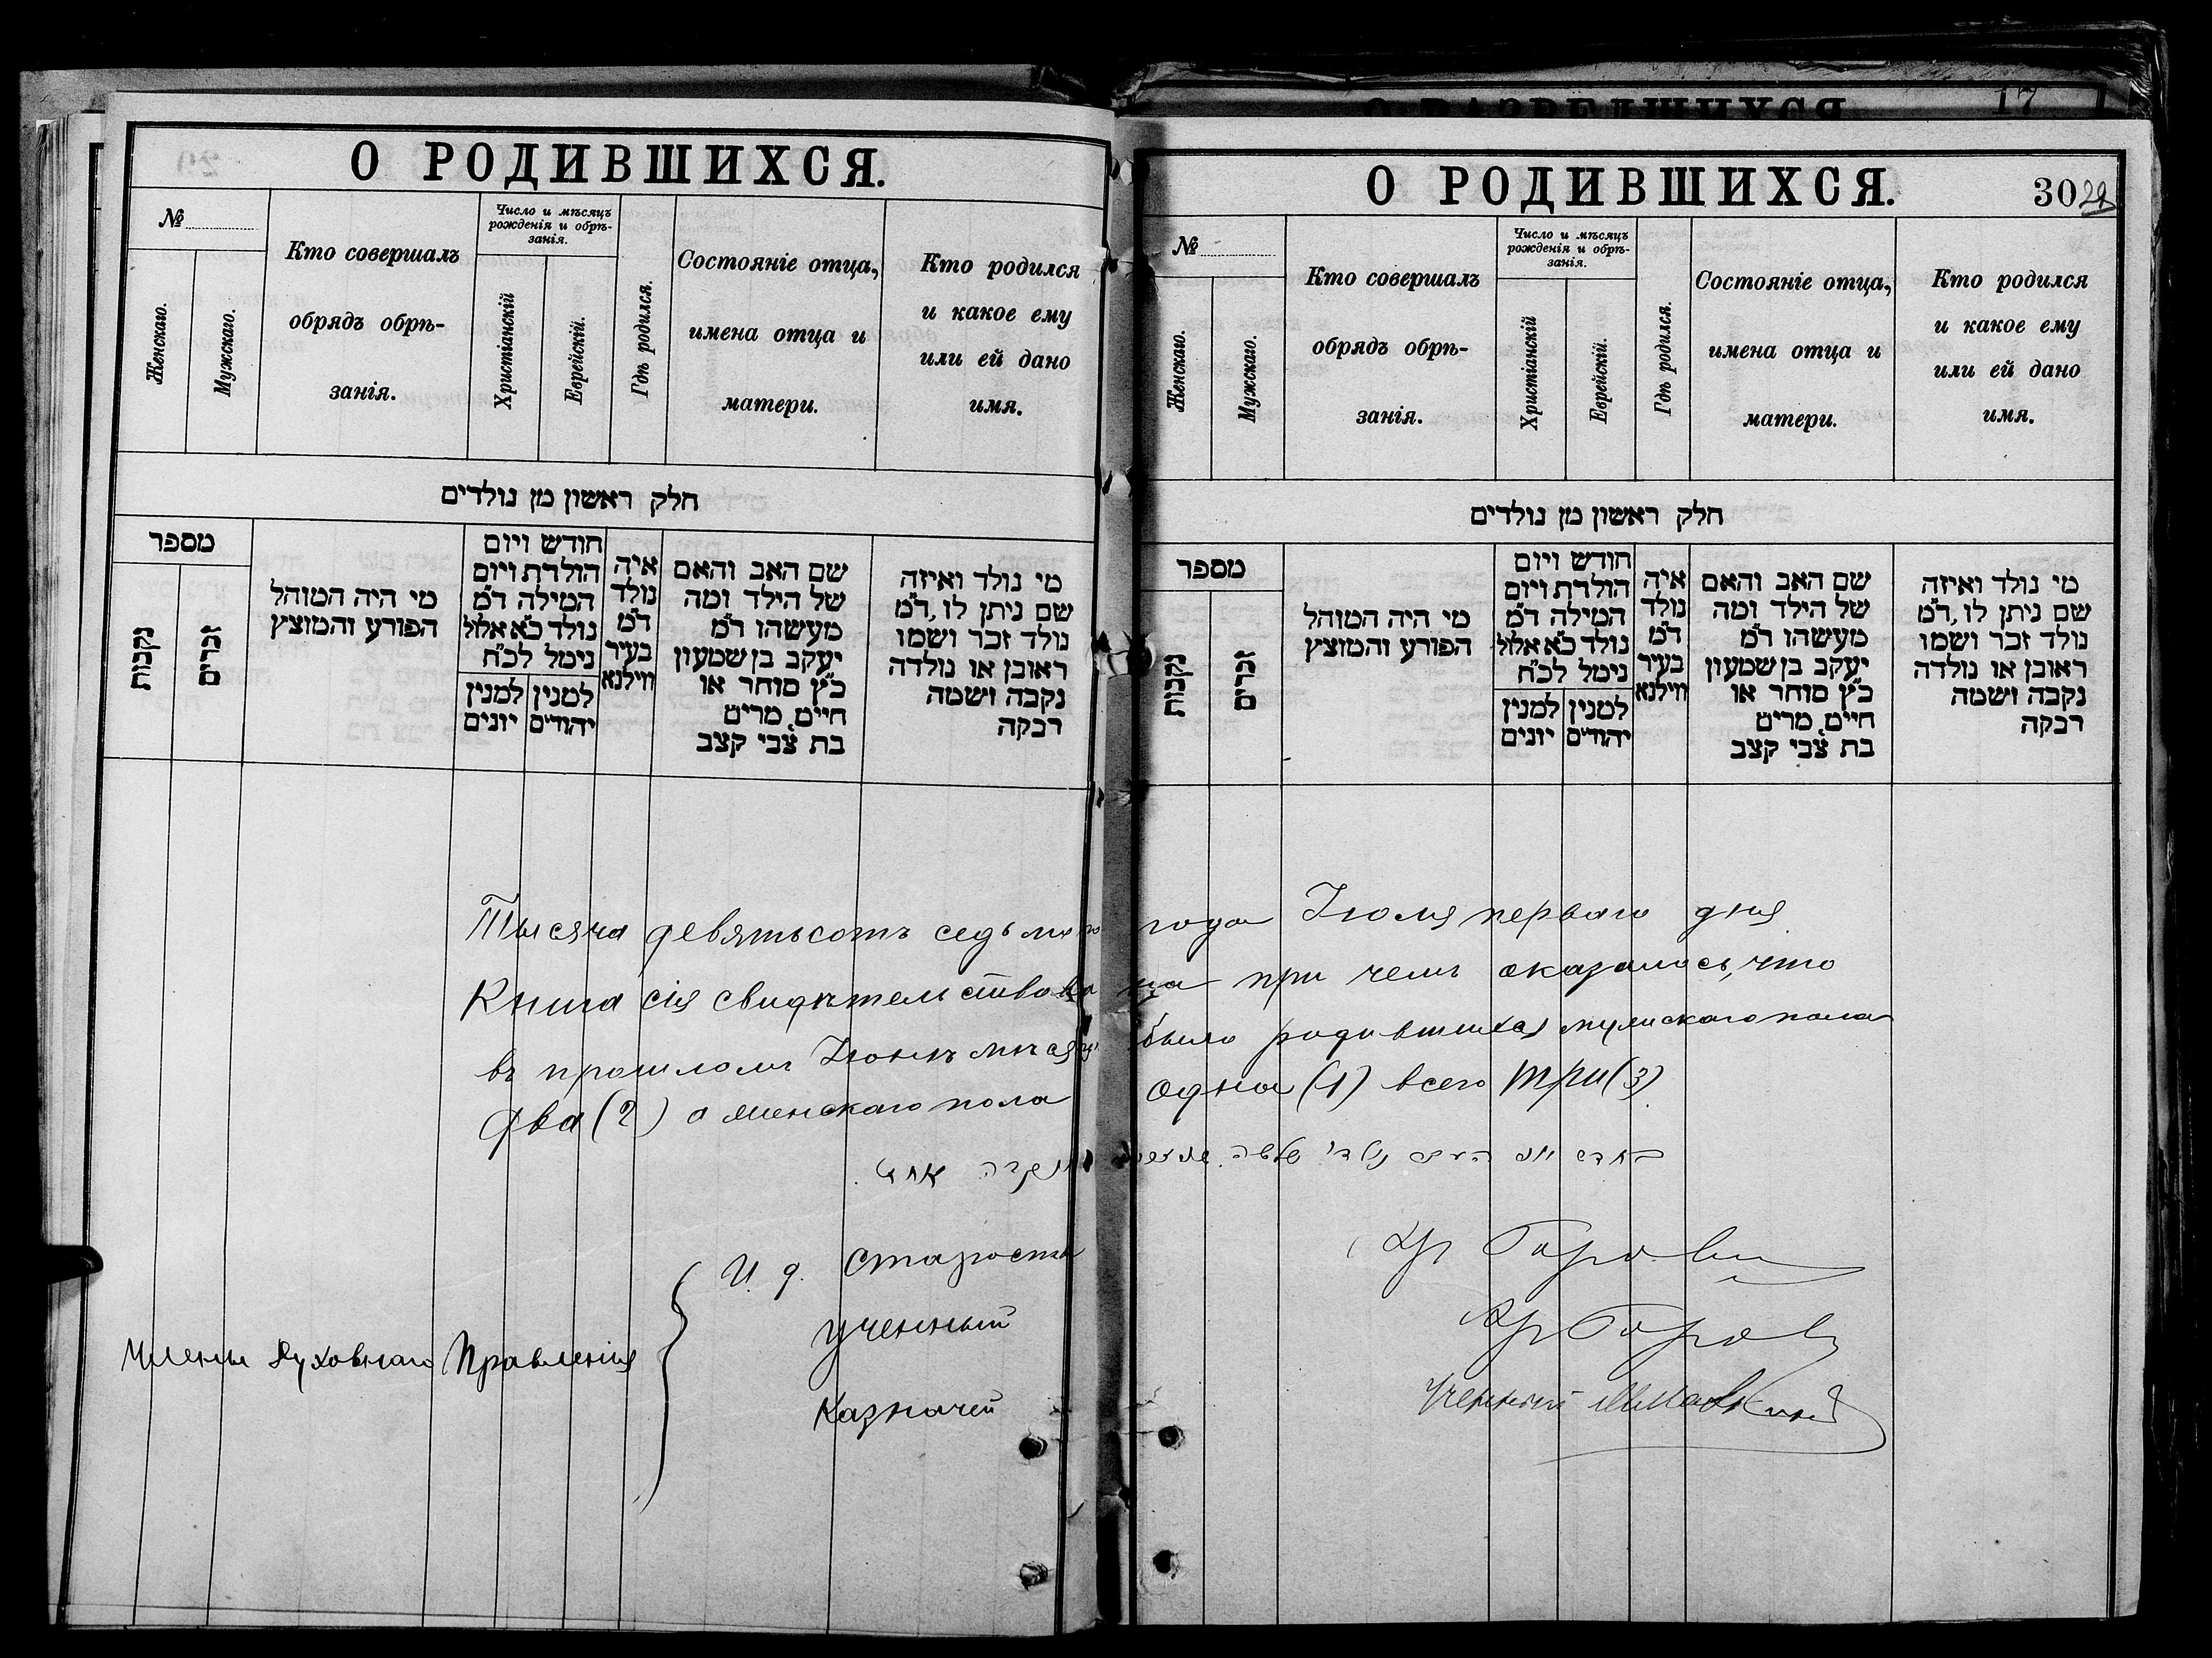 О РОДИВШИХСЯ.
№
Женскаго.
Мужскаго.
Кто совершалъ
обрядъ обрѣ-
занія.
Число и мѣсяцъ
рожденія и обрѣ-
занія.
Христіанскій
Еврейскій.
Гдѣ родился.
Состояніе отца,
имена отца и
матери.
Кто родился
и какое ему
или ей дано
имя.
חלק ראשון מן נולדים
מספר
נקבות
זכרים
מי היה המוהל
הפורע והמוצץ
חודש ויום
הולדת ויום
המילה ד״מ
נולד כ״א אלול
נימל לכ״ח
למנין יונים
למנין יהודים
איה
נולד
ד״מ
בעיר
ווילנא
שם האב והאם
של הילד ומה
מעשהו ד״מ
יעקב בן שמעון
כ״ץ סוחר או
חייט מרים
בת צבי קצב
מי נולד ואיזה
שם ניתן לו, ד״מ
נולד זכר ושמו
ראובן או נולדה
נקבה ושמה
רבקה
17
О РОДИВШИХСЯ.
30 29
№
Женскаго.
Мужскаго.
Кто совершалъ
обрядъ обрѣ-
занія.
Число и мѣсяцъ
рожденія и обрѣ-
занія.
Христіанскій
Еврейскій.
Гдѣ родился.
Состояніе отца,
имена отца и
матери.
Кто родился
и какое ему
или ей дано
имя.
חלק ראשון מן נולדים
מספר
נקבות
זכרים
מי היה המוהל
הפורע והמוצץ
חודש ויום
הולדת ויום
המילה ד״מ
נולד כ״א אלול
נימל לכ״ח
למנין יונים
למנין יהודים
איה
נולד
ד״מ
בעיר
ווילנא
שם האב והאם
של הילד ומה
מעשהו ד״מ
יעקב בן שמעון
כ״ץ סוחר או
חייט מרים
בת צבי קצב
מי נולד ואיזה
שם ניתן לו, ד״מ
נולד זכר ושמו
ראובן או נולדה
נקבה ושמה
רבקה
Тысяча девятьсотъ седьмого года Іюля перваго дня
Книга сія свидѣтельствована при чемъ оказалось, что
въ прошломъ Іюнѣ мѣсяцѣ было родившихся мужскаго пола
два (2) а женскаго пола одна (1) всего три (3)
Члены Духовнаго Правленія
И. д. Староста
Ученный
Казначей
Ученный